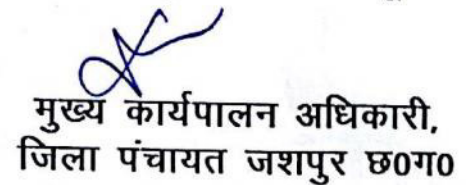 मुख्य कार्यपालन अधिकारी,
जिला पंचायत जशपुर छ0ग0